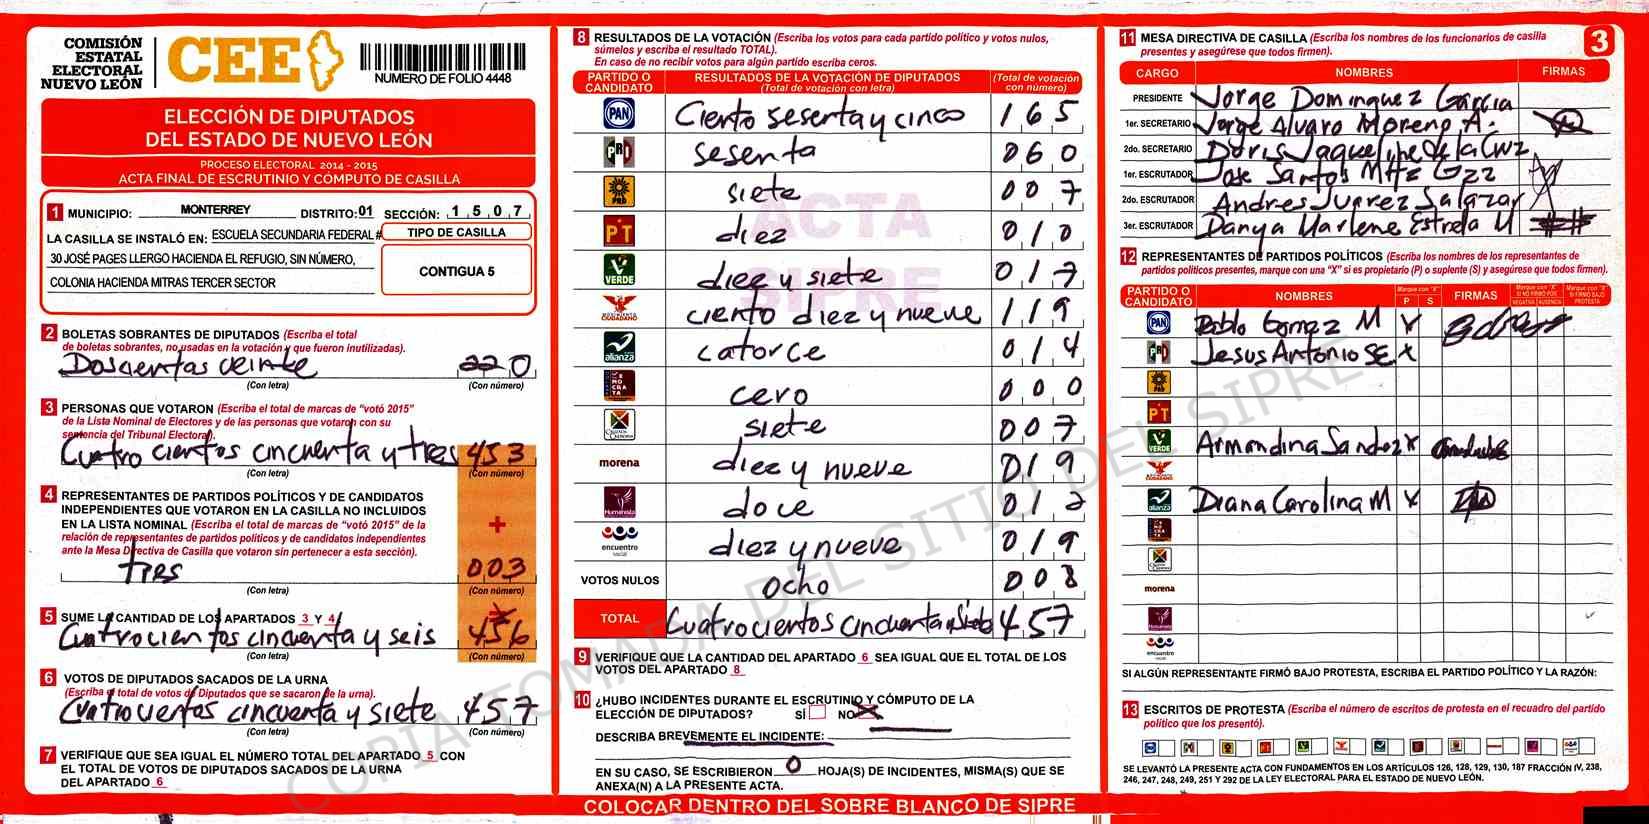 COMISIÓN
ESTATAL
ELECTORAL
NUEVO LEÓN
CEE
NUMERO DE FOLIO 4448
ELECCIÓN DE DIPUTADOS
DEL ESTADO DE NUEVO LEÓN
PROCESO ELECTORAL 2014 - 2015
ACTA FINAL DE ESCRUTINIO Y CÓMPUTO DE CASILLA
1 MUNICIPIO: MONTERREY DISTRITO: 01 SECCIÓN: 1 5 0 7
LA CASILLA SE INSTALÓ EN: ESCUELA SECUNDARIA FEDERAL #
30 JOSÉ PAGES LLERGO HACIENDA EL REFUGIO, SIN NÚMERO,
COLONIA HACIENDA MITRAS TERCER SECTOR
TIPO DE CASILLA
CONTIGUA 5
2 BOLETAS SOBRANTES DE DIPUTADOS (Escriba el total
de boletas sobrantes, no usadas en la votación y que fueron inutilizadas).
Doscientas veinte 220
(Con letra) (Con número)
3 PERSONAS QUE VOTARON (Escriba el total de marcas de "votó 2015"
de la Lista Nominal de Electores y de las personas que votaron con su
sentencia del Tribunal Electoral).
Cuatro cientos cincuenta y tres 453
(Con letra) (Con número)
4 REPRESENTANTES DE PARTIDOS POLÍTICOS Y DE CANDIDATOS
INDEPENDIENTES QUE VOTARON EN LA CASILLA NO INCLUIDOS
EN LA LISTA NOMINAL (Escriba el total de marcas de "votó 2015" de la
relación de representantes de partidos políticos y de candidatos independientes
ante la Mesa Directiva de Casilla que votaron sin pertenecer a esta sección).
+
tres 003
(Con letra) (Con número)
5 SUME LA CANTIDAD DE LOS APARTADOS 3 Y 4
Cuatrocientos cincuenta y seis 456
(Con letra) (Con número)
6 VOTOS DE DIPUTADOS SACADOS DE LA URNA
(Escriba el total de votos de Diputados que se sacaron de la urna).
Cuatrocientos cincuenta y siete 457
(Con letra) (Con número)
7 VERIFIQUE QUE SEA IGUAL EL NÚMERO TOTAL DEL APARTADO 5 CON
EL TOTAL DE VOTOS DE DIPUTADOS SACADOS DE LA URNA
DEL APARTADO 6
8 RESULTADOS DE LA VOTACIÓN (Escriba los votos para cada partido político y votos nulos,
súmelos y escriba el resultado TOTAL).
En caso de no recibir votos para algún partido escriba ceros.
PARTIDO O CANDIDATO RESULTADOS DE LA VOTACIÓN DE DIPUTADOS (Total de votación con letra) (Total de votación con número)
PAN Ciento sesenta y cinco 1 6 5
PRD sesenta 0 6 0
PRD siete 0 0 7
PT diez 0 1 0
VERDE diez y siete 0 1 7
MOVIMIENTO CIUDADANO ciento diez y nueve 1 1 9
alianza catorce 0 1 4
DEMOCRATA cero 0 0 0
CRUZADA CIUDADANA siete 0 0 7
morena diez y nueve 0 1 9
Humanista doce 0 1 2
encuentro social diez y nueve 0 1 9
VOTOS NULOS ocho 0 0 8
TOTAL Cuatrocientos cincuenta y siete 457
ACTA
SIPRE
9 VERIFIQUE QUE LA CANTIDAD DEL APARTADO 6 SEA IGUAL QUE EL TOTAL DE LOS
VOTOS DEL APARTADO 8
10 ¿HUBO INCIDENTES DURANTE EL ESCRUTINIO Y CÓMPUTO DE LA
ELECCIÓN DE DIPUTADOS? SÍ NO X
DESCRIBA BREVEMENTE EL INCIDENTE:
EN SU CASO, SE ESCRIBIERON 0 HOJA(S) DE INCIDENTES, MISMA(S) QUE SE
ANEXA(N) A LA PRESENTE ACTA.
COLOCAR DENTRO DEL SOBRE BLANCO DE SIPRE
11 MESA DIRECTIVA DE CASILLA (Escriba los nombres de los funcionarios de casilla
presentes y asegúrese que todos firmen).
3
CARGO NOMBRES FIRMAS
PRESIDENTE Jorge Dominguez Garcia
1er. SECRETARIO Jorge Alvaro Moreno A.
2do. SECRETARIO Doris Jaqueline de la Cruz
1er. ESCRUTADOR Jose Santos Mtz Gzz
2do. ESCRUTADOR Andres Juarez Salazar
3er. ESCRUTADOR Danya Marlene Estrada M
12 REPRESENTANTES DE PARTIDOS POLÍTICOS (Escriba los nombres de los representantes de
partidos políticos presentes, marque con una "X" si es propietario (P) o suplente (S) y asegúrese que todos firmen).
PARTIDO O CANDIDATO NOMBRES Marque con "X" P S FIRMAS Marque con "X" SI NO FIRMÓ POR NEGATIVA AUSENCIA Marque con "X" SI FIRMÓ BAJO PROTESTA
PAN Pablo Gomez M X
PRD Jesus Antonio SE X
PRD
PT
VERDE Armandina Sandoz X
MOVIMIENTO CIUDADANO
alianza Diana Carolina M X
morena
Humanista
encuentro social
SI ALGÚN REPRESENTANTE FIRMÓ BAJO PROTESTA, ESCRIBA EL PARTIDO POLÍTICO Y LA RAZÓN:
13 ESCRITOS DE PROTESTA (Escriba el número de escritos de protesta en el recuadro del partido
político que los presentó).
SE LEVANTÓ LA PRESENTE ACTA CON FUNDAMENTOS EN LOS ARTÍCULOS 126, 128, 129, 130, 187 FRACCIÓN IV, 238,
246, 247, 248, 249, 251 Y 292 DE LA LEY ELECTORAL PARA EL ESTADO DE NUEVO LEÓN.
COPIA TOMADA DEL SITIO DEL SIPRE